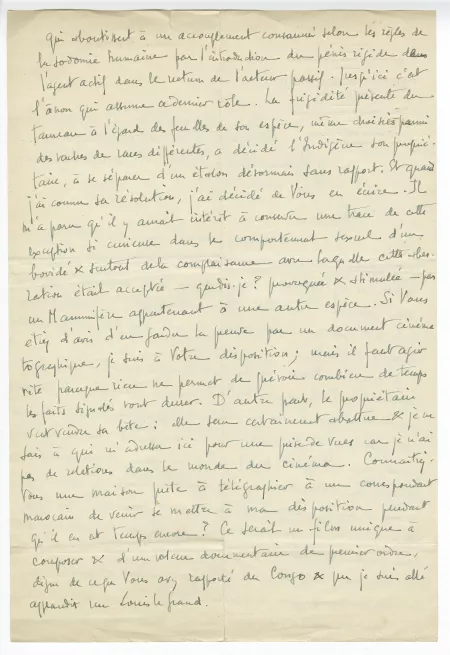 qui aboutissent à un accouplement consommé selon les règles de
la sodomie humaine par l'introduction du pénis rigide dans
l'agent actif dans le rectum de l'acteur passif. Jusqu'ici c'est
l'ânon qui assume ce dernier rôle. La frigidité présente du
taureau à l'égard des femelles de son espèce, même choisies parmi
des vaches de races différentes, a décidé l'Indigène son proprié-
taire, à se séparer d'un étalon désormais sans rapport. Et quand
j'ai connu sa résolution, j'ai décidé de Vous en écrire. Il
m'a paru qu'il y aurait intérêt à conserver une trace de cette
exception si curieuse dans le comportement sexuel d'un
bovidé & surtout de la complaisance avec laquelle cette aber-
ration était acceptée — que dis-je? provoquée & stimulée — par
un Mammifère appartenant à une autre espèce. Si Vous
étiez d'avis d'en garder la preuve par un document cinéma
tographique, je suis à Votre disposition; mais il faut agir
vite parce que rien ne permet de prévoir combien de temps
les faits signalés vont durer. D'autre part, le propriétaire
veut vendre sa bête : elle sera certainement abattue & je ne
sais à qui m'adresser ici pour une prise de vues car je n'ai
pas de relations dans le monde du cinéma. Connaitriez-
Vous une maison prête à télégraphier à un correspondant
marocain de venir se mettre à ma disposition pendant
qu'il en est temps encore? Ce serait un film unique à
composer & d'une valeur documentaire de premier ordre,
digne de ce que Vous avez rapporté du Congo & que je suis allé
applaudir au Louis le grand.